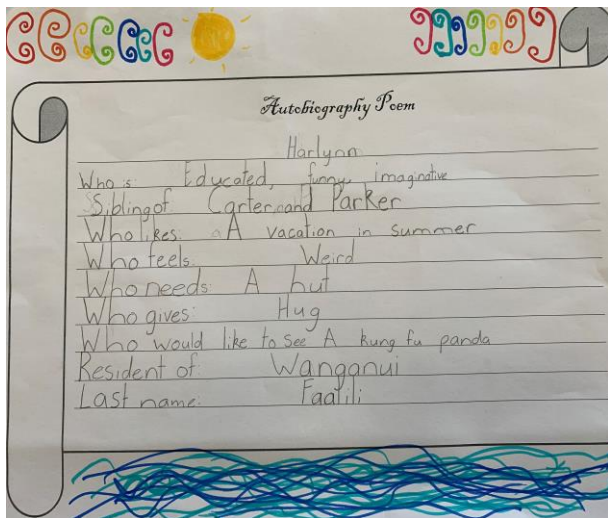 Autobiography Poem
Harlynn
Who is: Educated, funny, imaginative
Sibling of Carter and Parker
Who likes: A vacation in summer
Who feels Weird
Who needs: A hut
Who gives: Hug
Who would like to see A kung fu panda
Resident of: Wanganui
Last name: Faatili